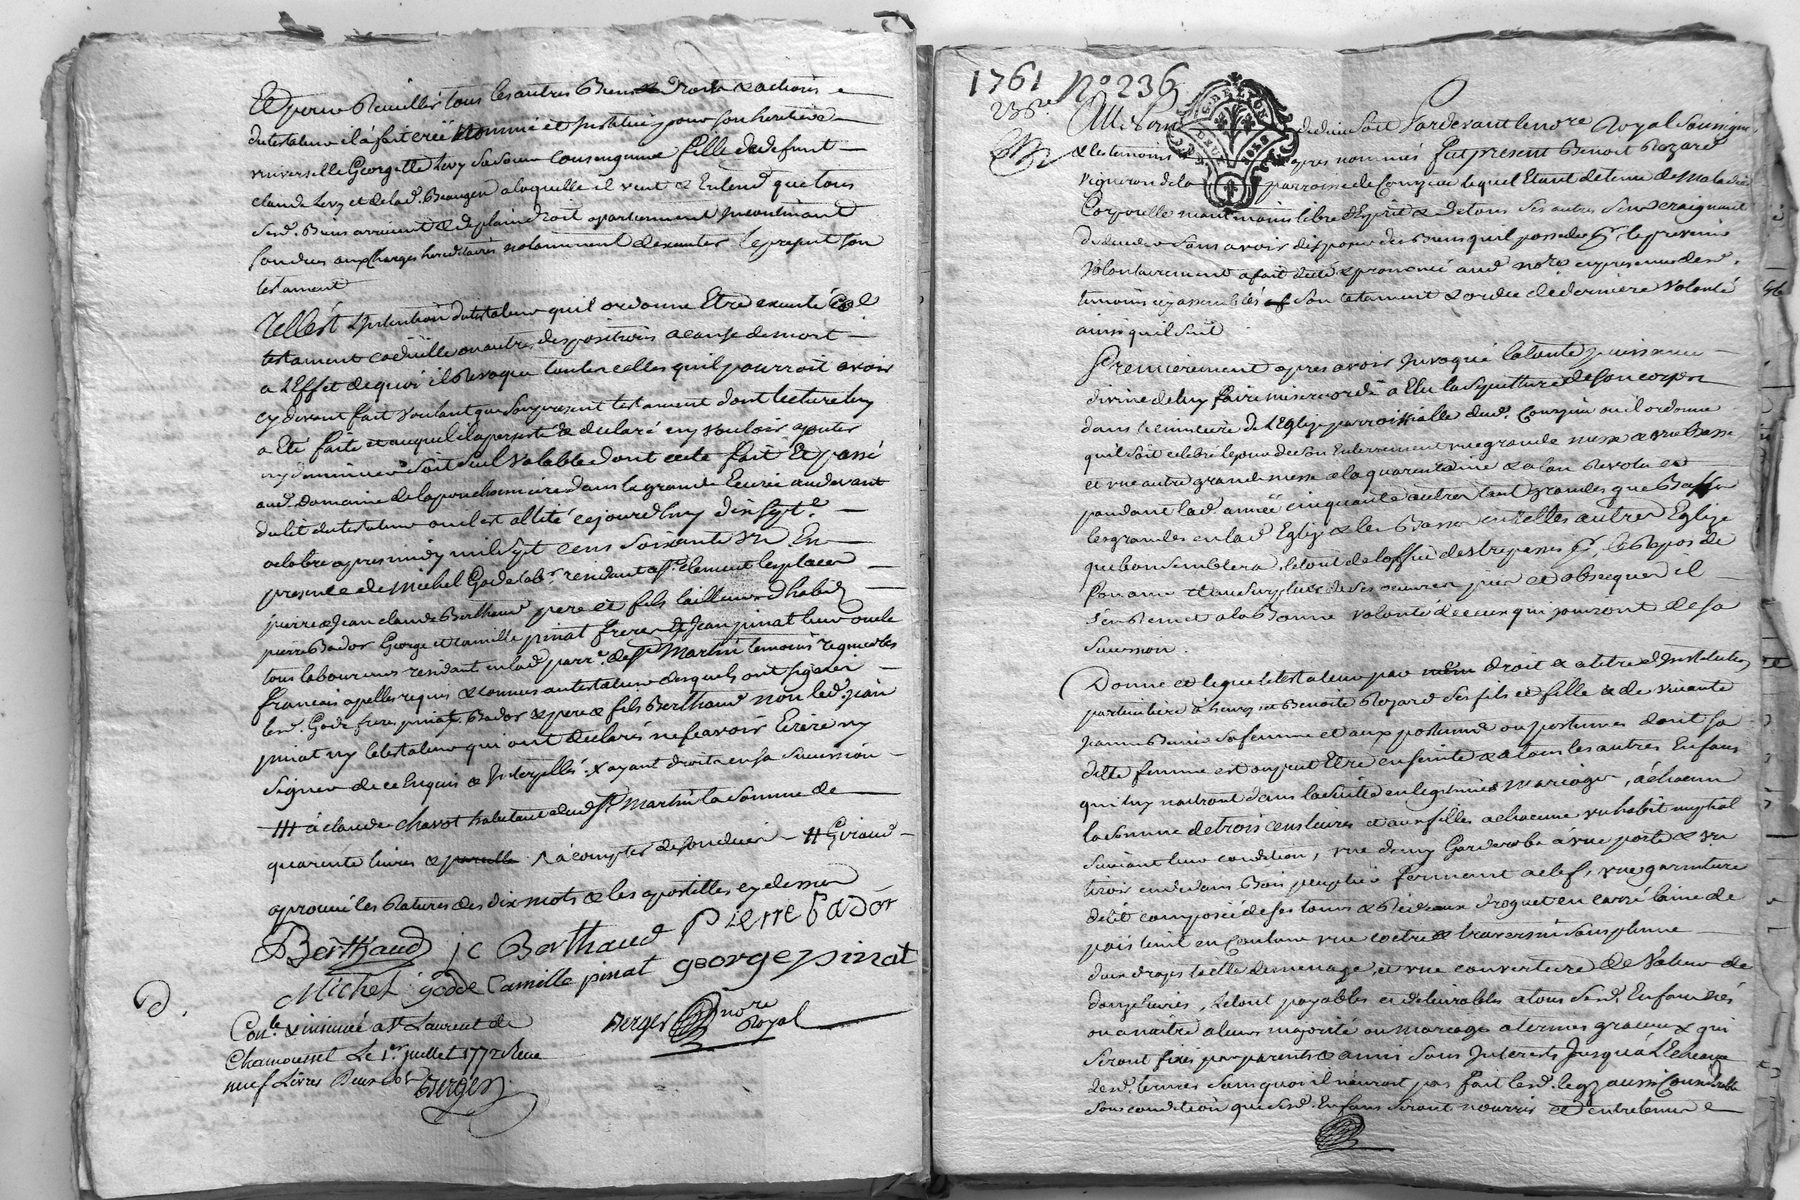 Et pour Recuillir tous les autres Biens Droits & actions
du testateur il a fait créé Nommé et Institué pour son heritiere
universelle Georgette Levy sa soeur consanguine fille de defunt
claude Levy et de lad. Beaugeu a laquelle il veut & Entend que tous
sesd. Biens arrivent & de plain droit apartiennent
aux Charges hereditaires notamment d'executer le present son
testament
Telle est L'Intention du testateur qu'il ordonne Etre executé
testament codicille ou autres dispositions a cause de mort
a L'Effet de quoi il Revoque toutes celles qu'il pourroit avoir
cy devant fait voulant que son present testament dont lecture luy
a Eté faite et auquel il a persisté & declaré n'y vouloir ajouter
ny diminuer soit seul valable dont acte fait Et passé
aud. Domaine de la ponchonniere dans la grande Ecurie au devant
du lit du testateur ou il est allité cejourdhuy dix sept.e
octobre apres midy mil sept cens soixante un En
presence de Michel Gode lab.r residant a St. Clement les places
pierre & Jean claude Berthaud pere et fils tailleurs d'habits
pierre Bador George et camille pinat freres & Jean pinat leur oncle
tous laboureurs residant en lad. parr.e de St. Martin temoins regnicoles
francais apellés requis & connus au testateur desquels ont signé
lesd. Gode freres pinat, Bador & pere & fils Berthaud non led. jean
pinat ny le testateur qui ont declarés ne sçavoir Ecrire ny
signer de ce Enquis & Interpellés. X ayant droit en sa succession
# à claude chavot habitant aud. St. Martin la somme de
quarente livres & # Giraud
aprouvé les Ratures des dix mots & les apostilles cy dessus
Berthaud j c Berthaud Pierre Bador
Michel gode Camille pinat george pinat
Berger no.re Royal
Con.lé & insinué a St. Laurent de
Chamousset Le 1.er juillet 1772 Reçu
neuf Livres Deux sols
Berger
1761 N° 236
236.e
G. DE LYON
du deux Sept Pardevant le no.re Royal soussigné
& les temoins apres nommés fut present Benoit Rozard
vigneron de la parroisse de Courzieu lequel Etant detenu de Maladie
Corporelle neant moins libre d'Esprit & de tous ses autres sens craignant
de deceder sans avoir disposé des Biens qu'il possede p.r le prevenir
Volontairement a fait dicté & prononcé aud. no.re en presence desd.
temoins cy assemblés son testament & ordre de derniere volonté
ainsi qu'il suit
Premierement apres avoir Invoqué la toute puissance
divine de luy faire misericorde a Elu la sepulture de son corps
dans le cimetiere de L'Eglise parroissialle dud. Courzieu ou il ordonne
qu'il soit celebré le jour de son Enterrement une grande messe & une Basse
et une autre grande messe a la quarentaine & a l'an Revolu et
pendant lad. année cinquante autres tant grandes que Basses
les grandes en lad. Eglise & les Basses en telles autres Eglise
que bon semblera, le tout de l'office des trepassés p.r le Repos de
son ame et au surplus de ses oeuvres pies et obseques il
s'en Remet a la Bonne volonté de ceux qui jouiront de sa
succession.
Donne et legue le testateur par droit & a titre d'Institution
particuliere a et Benoite Rozard ses fils et fille & de vivante
Jeanne sa femme et aux postume ou postumes dont sa
ditte femme est ou peut Etre enceinte & a tous les autres Enfans
qui luy naitront dans la suite en legitime mariage, a chacun
la somme de trois cens livres et aux filles a chacune un habit nuptial
suivant leur condition, une demy Garderobe à une porte & un
tiroir en dedans Bois peuplier fermant a clef, une garniture
de lit composée de ses tours & Rideaux droguet en carré laine de
pais teint en Couleur une coetre & traversin sans plume
deux draps toille de menage, et une couverture de Valeur de
douze livres, Le tout payables et delivrables a tous sesd. Enfans nés
ou a naitre a leurs majorité ou mariage a termes gracieux qui
seront fixés par parents & amis sans Interets Jusqu'à L'Echeance
desd. termes sans quoi il n'auroit pas fait lesd. legs aussi Considerable
sous condition que sesd. Enfans seront nourris et entretenus